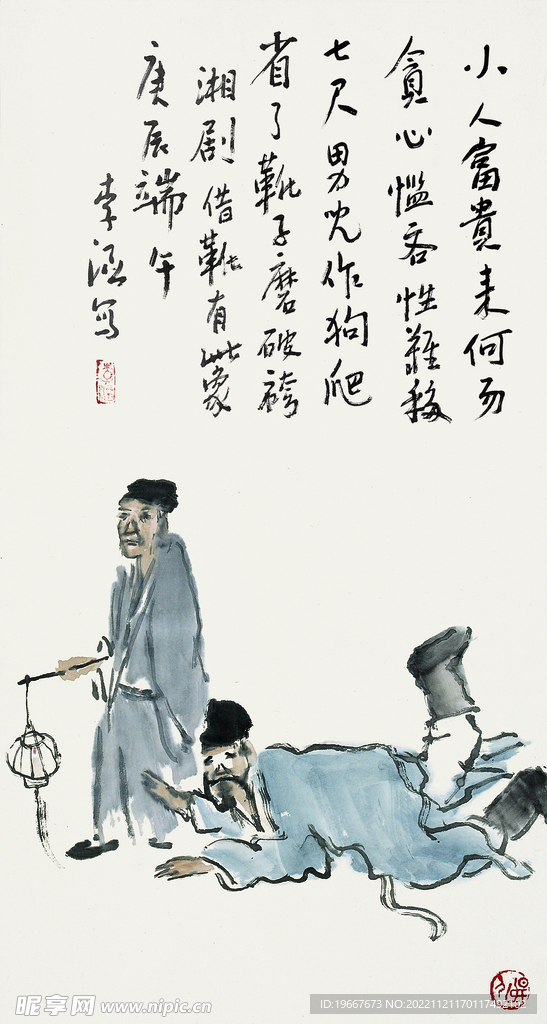 小人富貴来何易
貪心慳吝性難移
七尺男児作狗爬
省了靴子磨破袴
湘剧借靴有此象
庚辰端午
李涵写
昵享网 www.nipic.cn
ID:19667673 NO:20221121170117492102